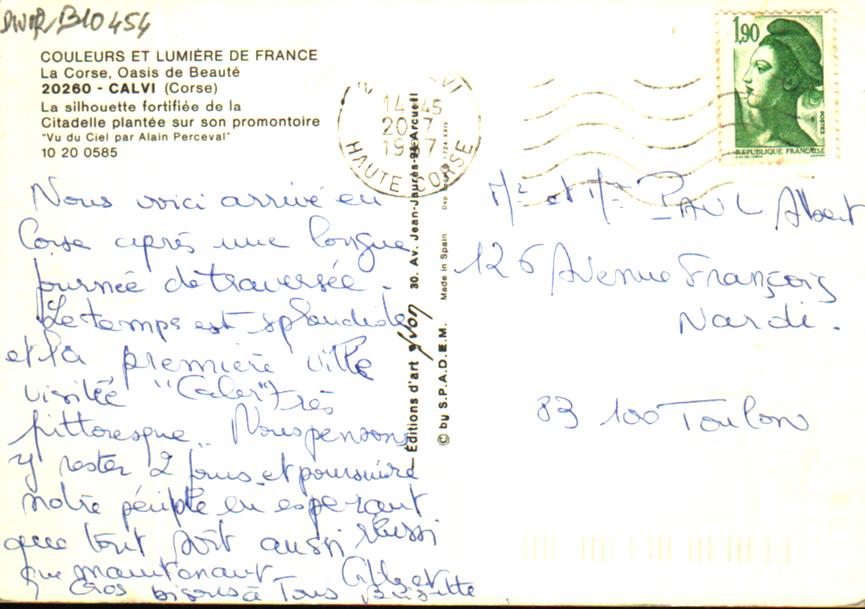 B10454
COULEURS ET LUMIÈRE DE FRANCE
La Corse, Oasis de Beauté
20260 - CALVI (Corse)
La silhouette fortifiée de la
Citadelle plantée sur son promontoire
"Vu du Ciel par Alain Perceval"
10 20 0585
Nous voici arrivé en
Corse après une longue
journée de traversée.
Le temps est splendide
et la première ville
visitée "Calvi" très
pittoresque. Nous pensons
y rester 2 jours et poursuivre
notre périple en espérant
que tout soit aussi réussi
que maintenant
Gros bisous à Tous
Editions d'art Yvon 30. Av. Jean-Jaurès-94 Arcueil
© by S.P.A.D.E.M. Made in Spain
14 45
20-7
HAUTE CORSE
1,90
POSTES
REPUBLIQUE FRANÇAISE
Mr et Mme PAUL Albert
126 Avenue François
Nardi.
83 100 Toulon